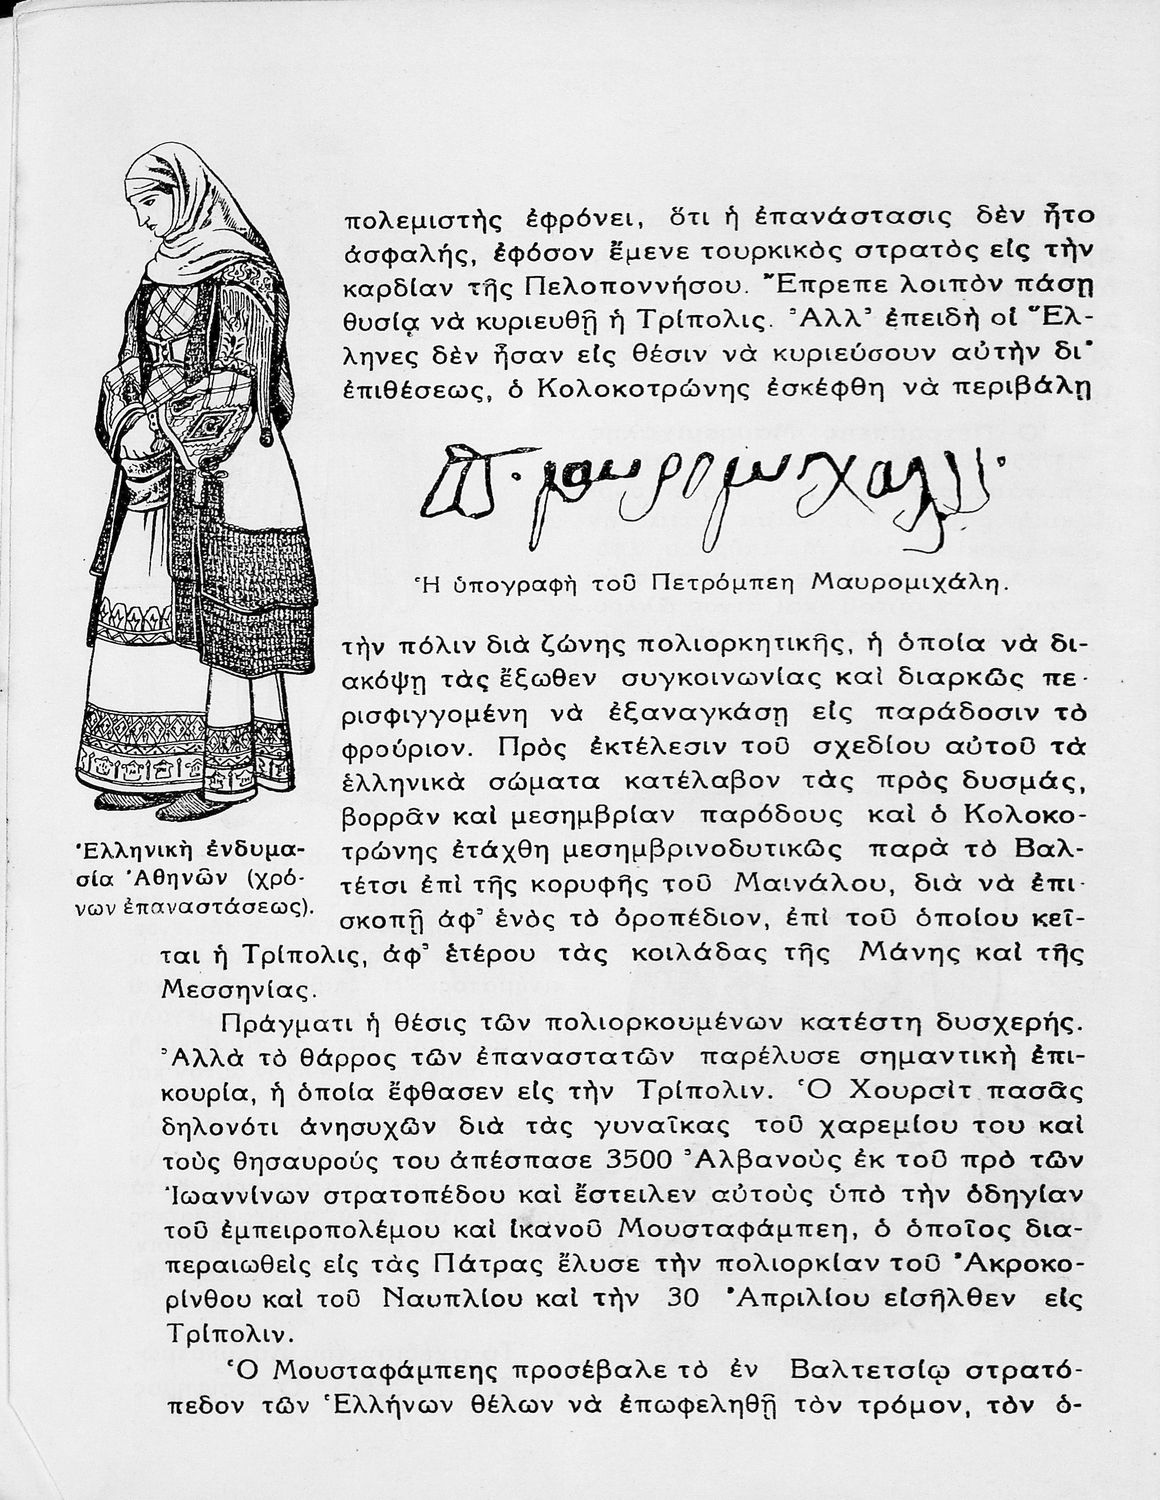 πολεμιστὴς ἐφρόνει, ὅτι ἡ ἐπανάστασις δὲν ἦτο
ἀσφαλής, ἐφόσον ἔμενε τουρκικὸς στρατὸς εἰς τὴν
καρδίαν τῆς Πελοποννήσου. Ἔπρεπε λοιπὸν πάσῃ
θυσίᾳ νὰ κυριευθῇ ἡ Τρίπολις. Ἀλλ’ ἐπειδὴ οἱ Ἕλ-
ληνες δὲν ἦσαν εἰς θέσιν νὰ κυριεύσουν αὐτὴν δι’
ἐπιθέσεως, ὁ Κολοκοτρώνης ἐσκέφθη νὰ περιβάλῃ
Ἡ ὑπογραφὴ τοῦ Πετρόμπεη Μαυρομιχάλη.
τὴν πόλιν διὰ ζώνης πολιορκητικῆς, ἡ ὁποία νὰ δι-
ακόψῃ τὰς ἔξωθεν συγκοινωνίας καὶ διαρκῶς πε-
ρισφιγγομένη νὰ ἐξαναγκάσῃ εἰς παράδοσιν τὸ
φρούριον. Πρὸς ἐκτέλεσιν τοῦ σχεδίου αὐτοῦ τὰ
ἑλληνικὰ σώματα κατέλαβον τὰς πρὸς δυσμάς,
βορρᾶν καὶ μεσημβρίαν παρόδους καὶ ὁ Κολοκο-
τρώνης ἐτάχθη μεσημβρινοδυτικῶς παρὰ τὸ Βαλ-
τέτσι ἐπὶ τῆς κορυφῆς τοῦ Μαινάλου, διὰ νὰ ἐπι-
σκοπῇ ἀφ’ ἑνὸς τὸ ὀροπέδιον, ἐπὶ τοῦ ὁποίου κεῖ-
ται ἡ Τρίπολις, ἀφ’ ἑτέρου τὰς κοιλάδας τῆς Μάνης καὶ τῆς
Μεσσηνίας.
Ἑλληνικὴ ἐνδυμα-
σία Ἀθηνῶν (χρό-
νων ἐπαναστάσεως).
Πράγματι ἡ θέσις τῶν πολιορκουμένων κατέστη δυσχερής.
Ἀλλὰ τὸ θάρρος τῶν ἐπαναστατῶν παρέλυσε σημαντικὴ ἐπι-
κουρία, ἡ ὁποία ἔφθασεν εἰς τὴν Τρίπολιν. Ὁ Χουρσὶτ πασᾶς
δηλονότι ἀνησυχῶν διὰ τὰς γυναῖκας τοῦ χαρεμίου του καὶ
τοὺς θησαυρούς του ἀπέσπασε 3500 Ἀλβανοὺς ἐκ τοῦ πρὸ τῶν
Ἰωαννίνων στρατοπέδου καὶ ἔστειλεν αὐτοὺς ὑπὸ τὴν ὁδηγίαν
τοῦ ἐμπειροπολέμου καὶ ἱκανοῦ Μουσταφάμπεη, ὁ ὁποῖος δια-
περαιωθεὶς εἰς τὰς Πάτρας ἔλυσε τὴν πολιορκίαν τοῦ Ἀκροκο-
ρίνθου καὶ τοῦ Ναυπλίου καὶ τὴν 30 Ἀπριλίου εἰσῆλθεν εἰς
Τρίπολιν.
Ὁ Μουσταφάμπεης προσέβαλε τὸ ἐν Βαλτετσίῳ στρατό-
πεδον τῶν Ἑλλήνων θέλων νὰ ἐπωφεληθῇ τὸν τρόμον, τὸν ὁ-